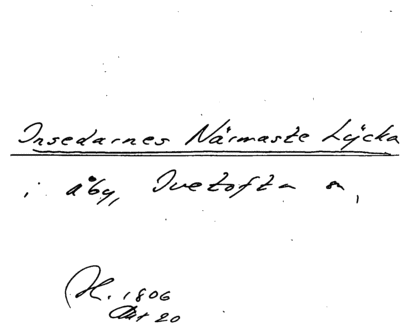 Insedarnes Närmaste Lÿcka
i åby, Ivetofta sn,
H. 1806
Akt 20